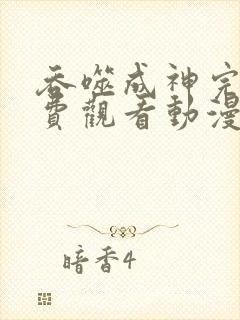 吞噬成神完
費觀看動漫
暗香4